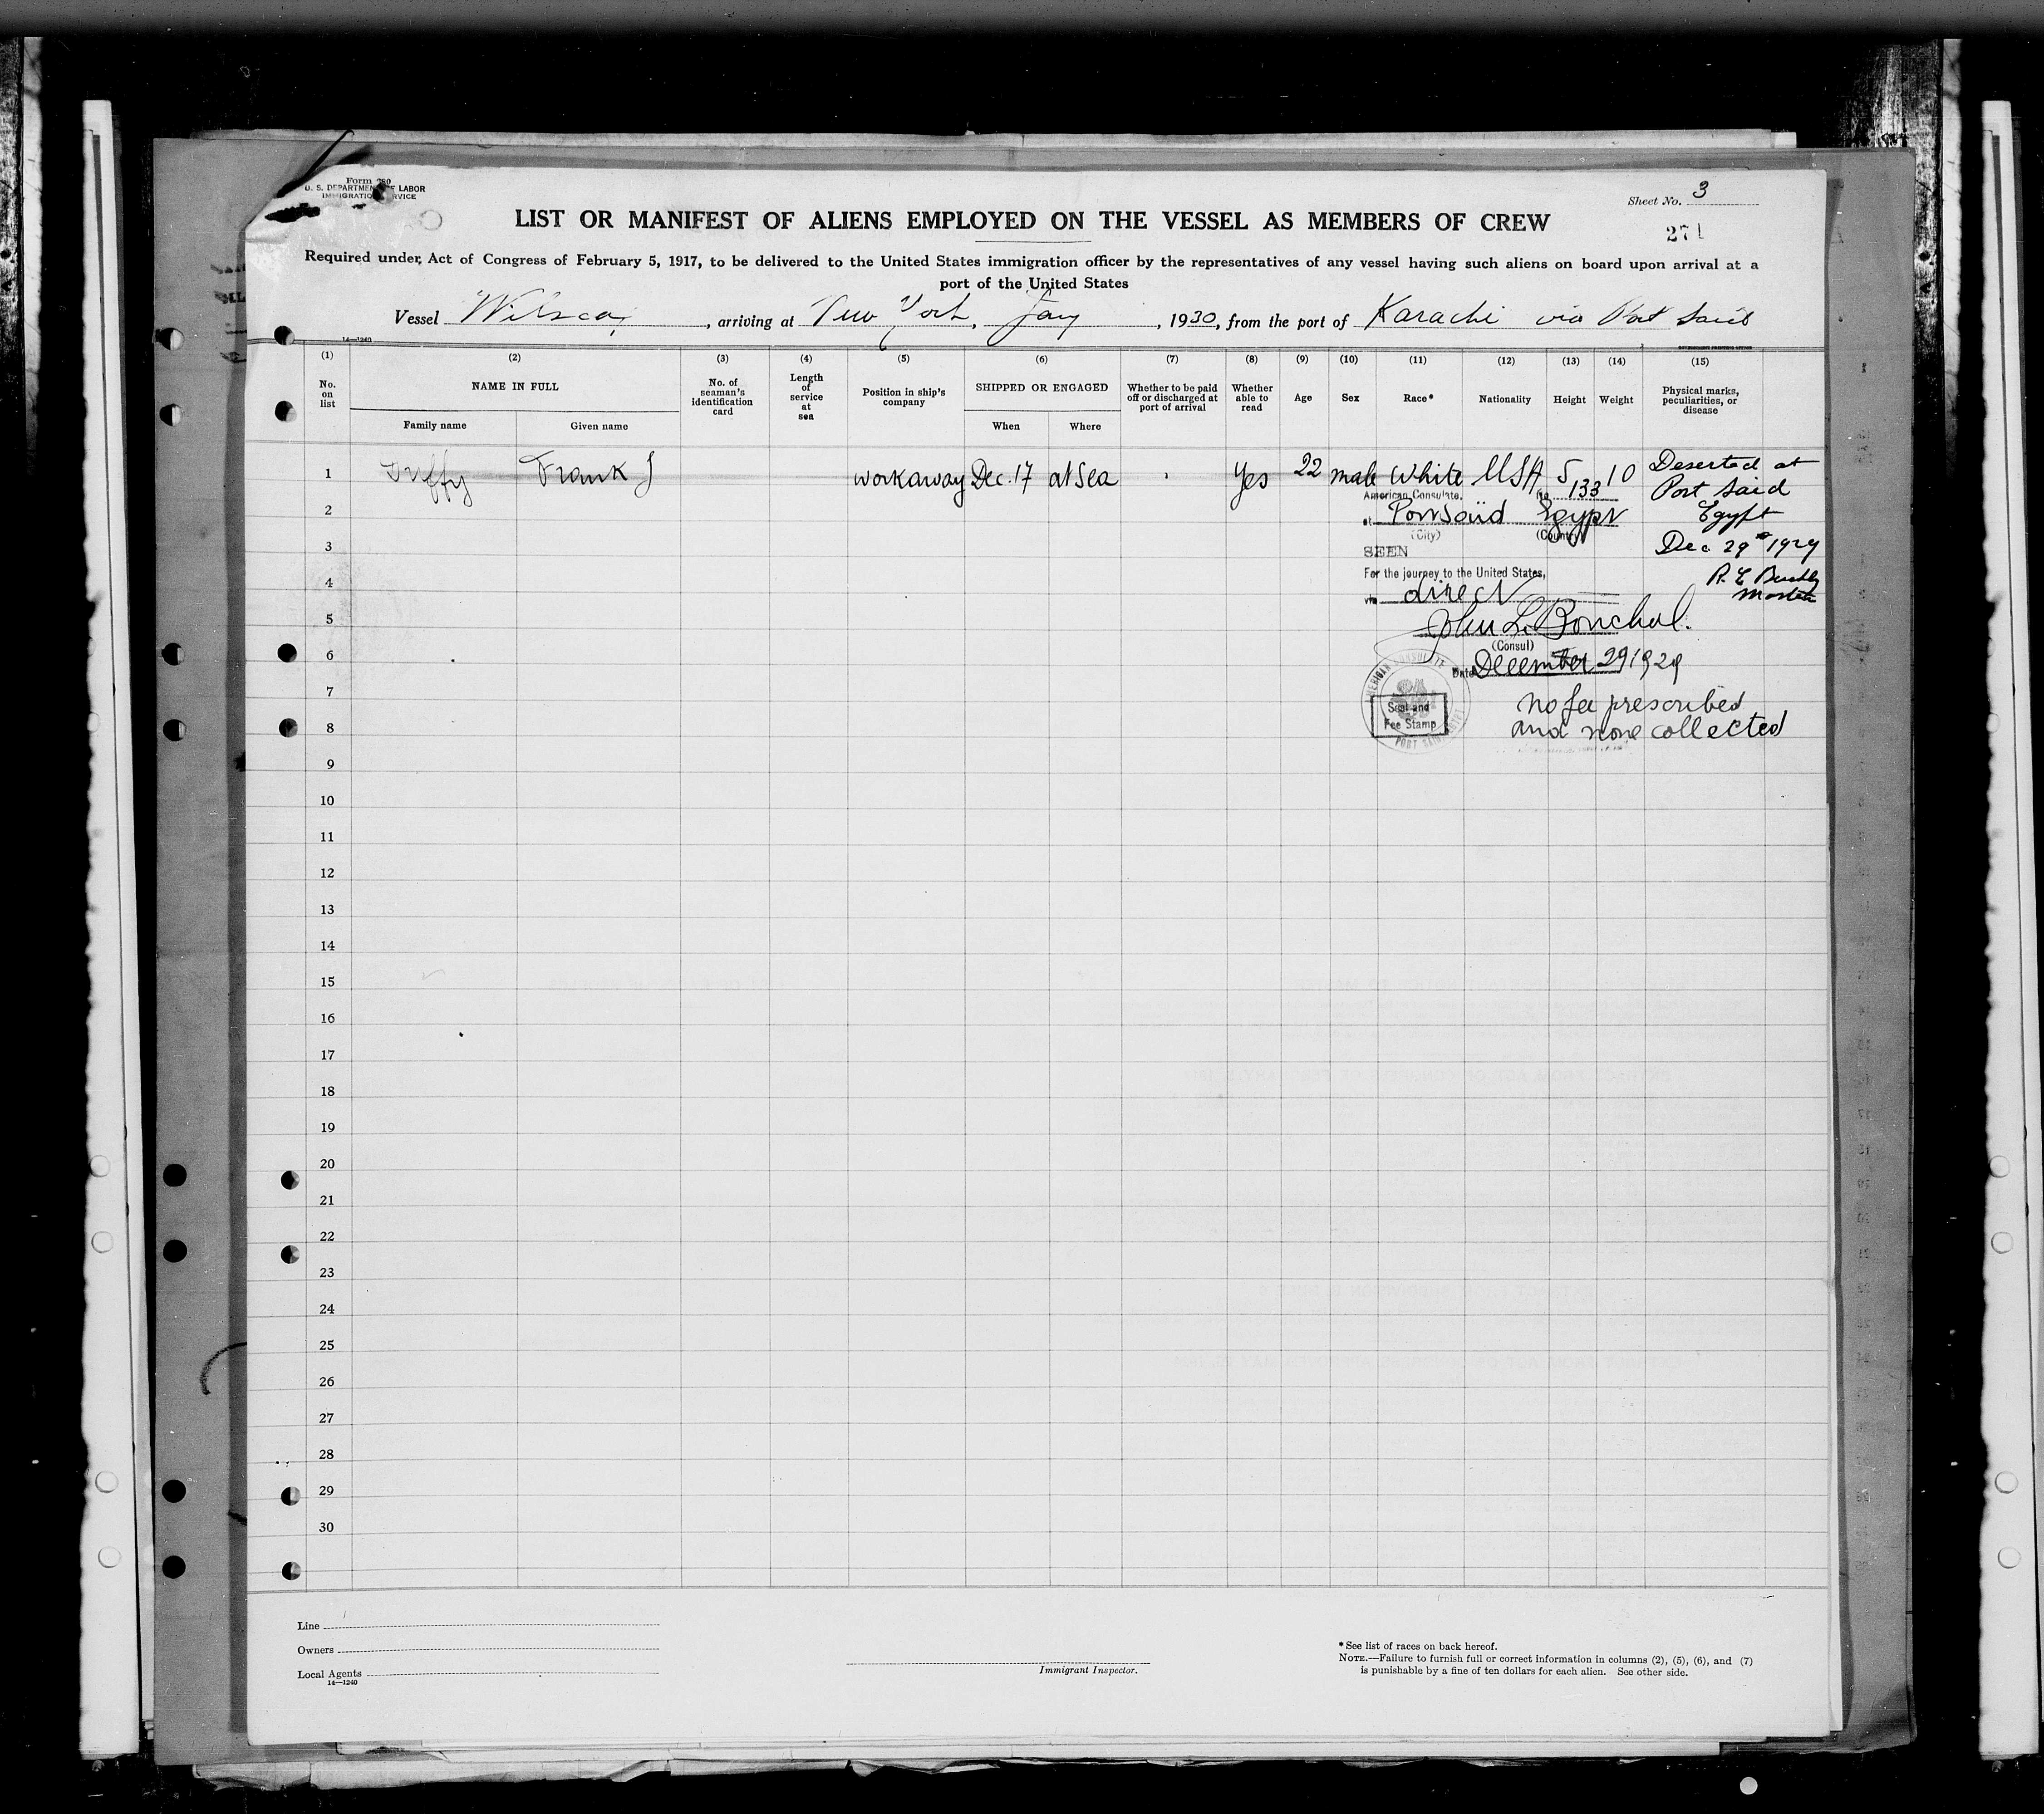 Form 680
U. S. DEPARTMENT OF LABOR
IMMIGRATION SERVICE
Sheet No. 3
LIST OR MANIFEST OF ALIENS EMPLOYED ON THE VESSEL AS MEMBERS OF CREW
271
Required under Act of Congress of February 5, 1917, to be delivered to the United States immigration officer by the representatives of any vessel having such aliens on board upon arrival at a
port of the United States
Vessel Wilscox, arriving at New York, Jany, 1930, from the port of Karachi via Port Said
14—1240
(1) (2) (3) (4) (5) (6) (7) (8) (9) (10) (11) (12) (13) (14) (15)
No. on list
NAME IN FULL
Family name
Given name
No. of seaman's identification card
Length of service at sea
Position in ship's company
SHIPPED OR ENGAGED
When
Where
Whether to be paid off or discharged at port of arrival
Whether able to read
Age
Sex
Race*
Nationality
Height
Weight
Physical marks, peculiarities, or disease
1 Duffy Frank J workaway Dec. 17 at Sea Yes 22 male White USA 5 10 133 Deserted at
Port Said
Egypt
Dec 29th 1929
Master
American Consulate.
at Port Said Egypt
(City) (Country)
SEEN
For the journey to the United States,
via direct
John L. Bouchal.
(Consul)
Date December 29 1929
AMERICAN CONSULATE
PORT SAID, EGYPT
Seal and
Fee Stamp
No fee prescribed
and none collected
2
3
4
5
6
7
8
9
10
11
12
13
14
15
16
17
18
19
20
21
22
23
24
25
26
27
28
29
30
Line
Owners
Local Agents
14—1240
Immigrant Inspector.
* See list of races on back hereof.
NOTE.—Failure to furnish full or correct information in columns (2), (5), (6), and (7)
is punishable by a fine of ten dollars for each alien. See other side.